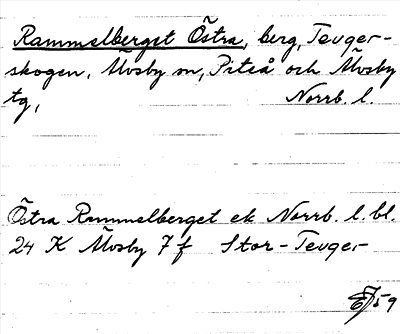 Rammelberget Östra, berg, Teuger-
skogen, Älvsby sn, Piteå och Älvsby
tg, Norrb. l.
Östra Rammelberget ek Norrb. l. bl.
24 K Älvsby 7 f Stor-Teuger
59